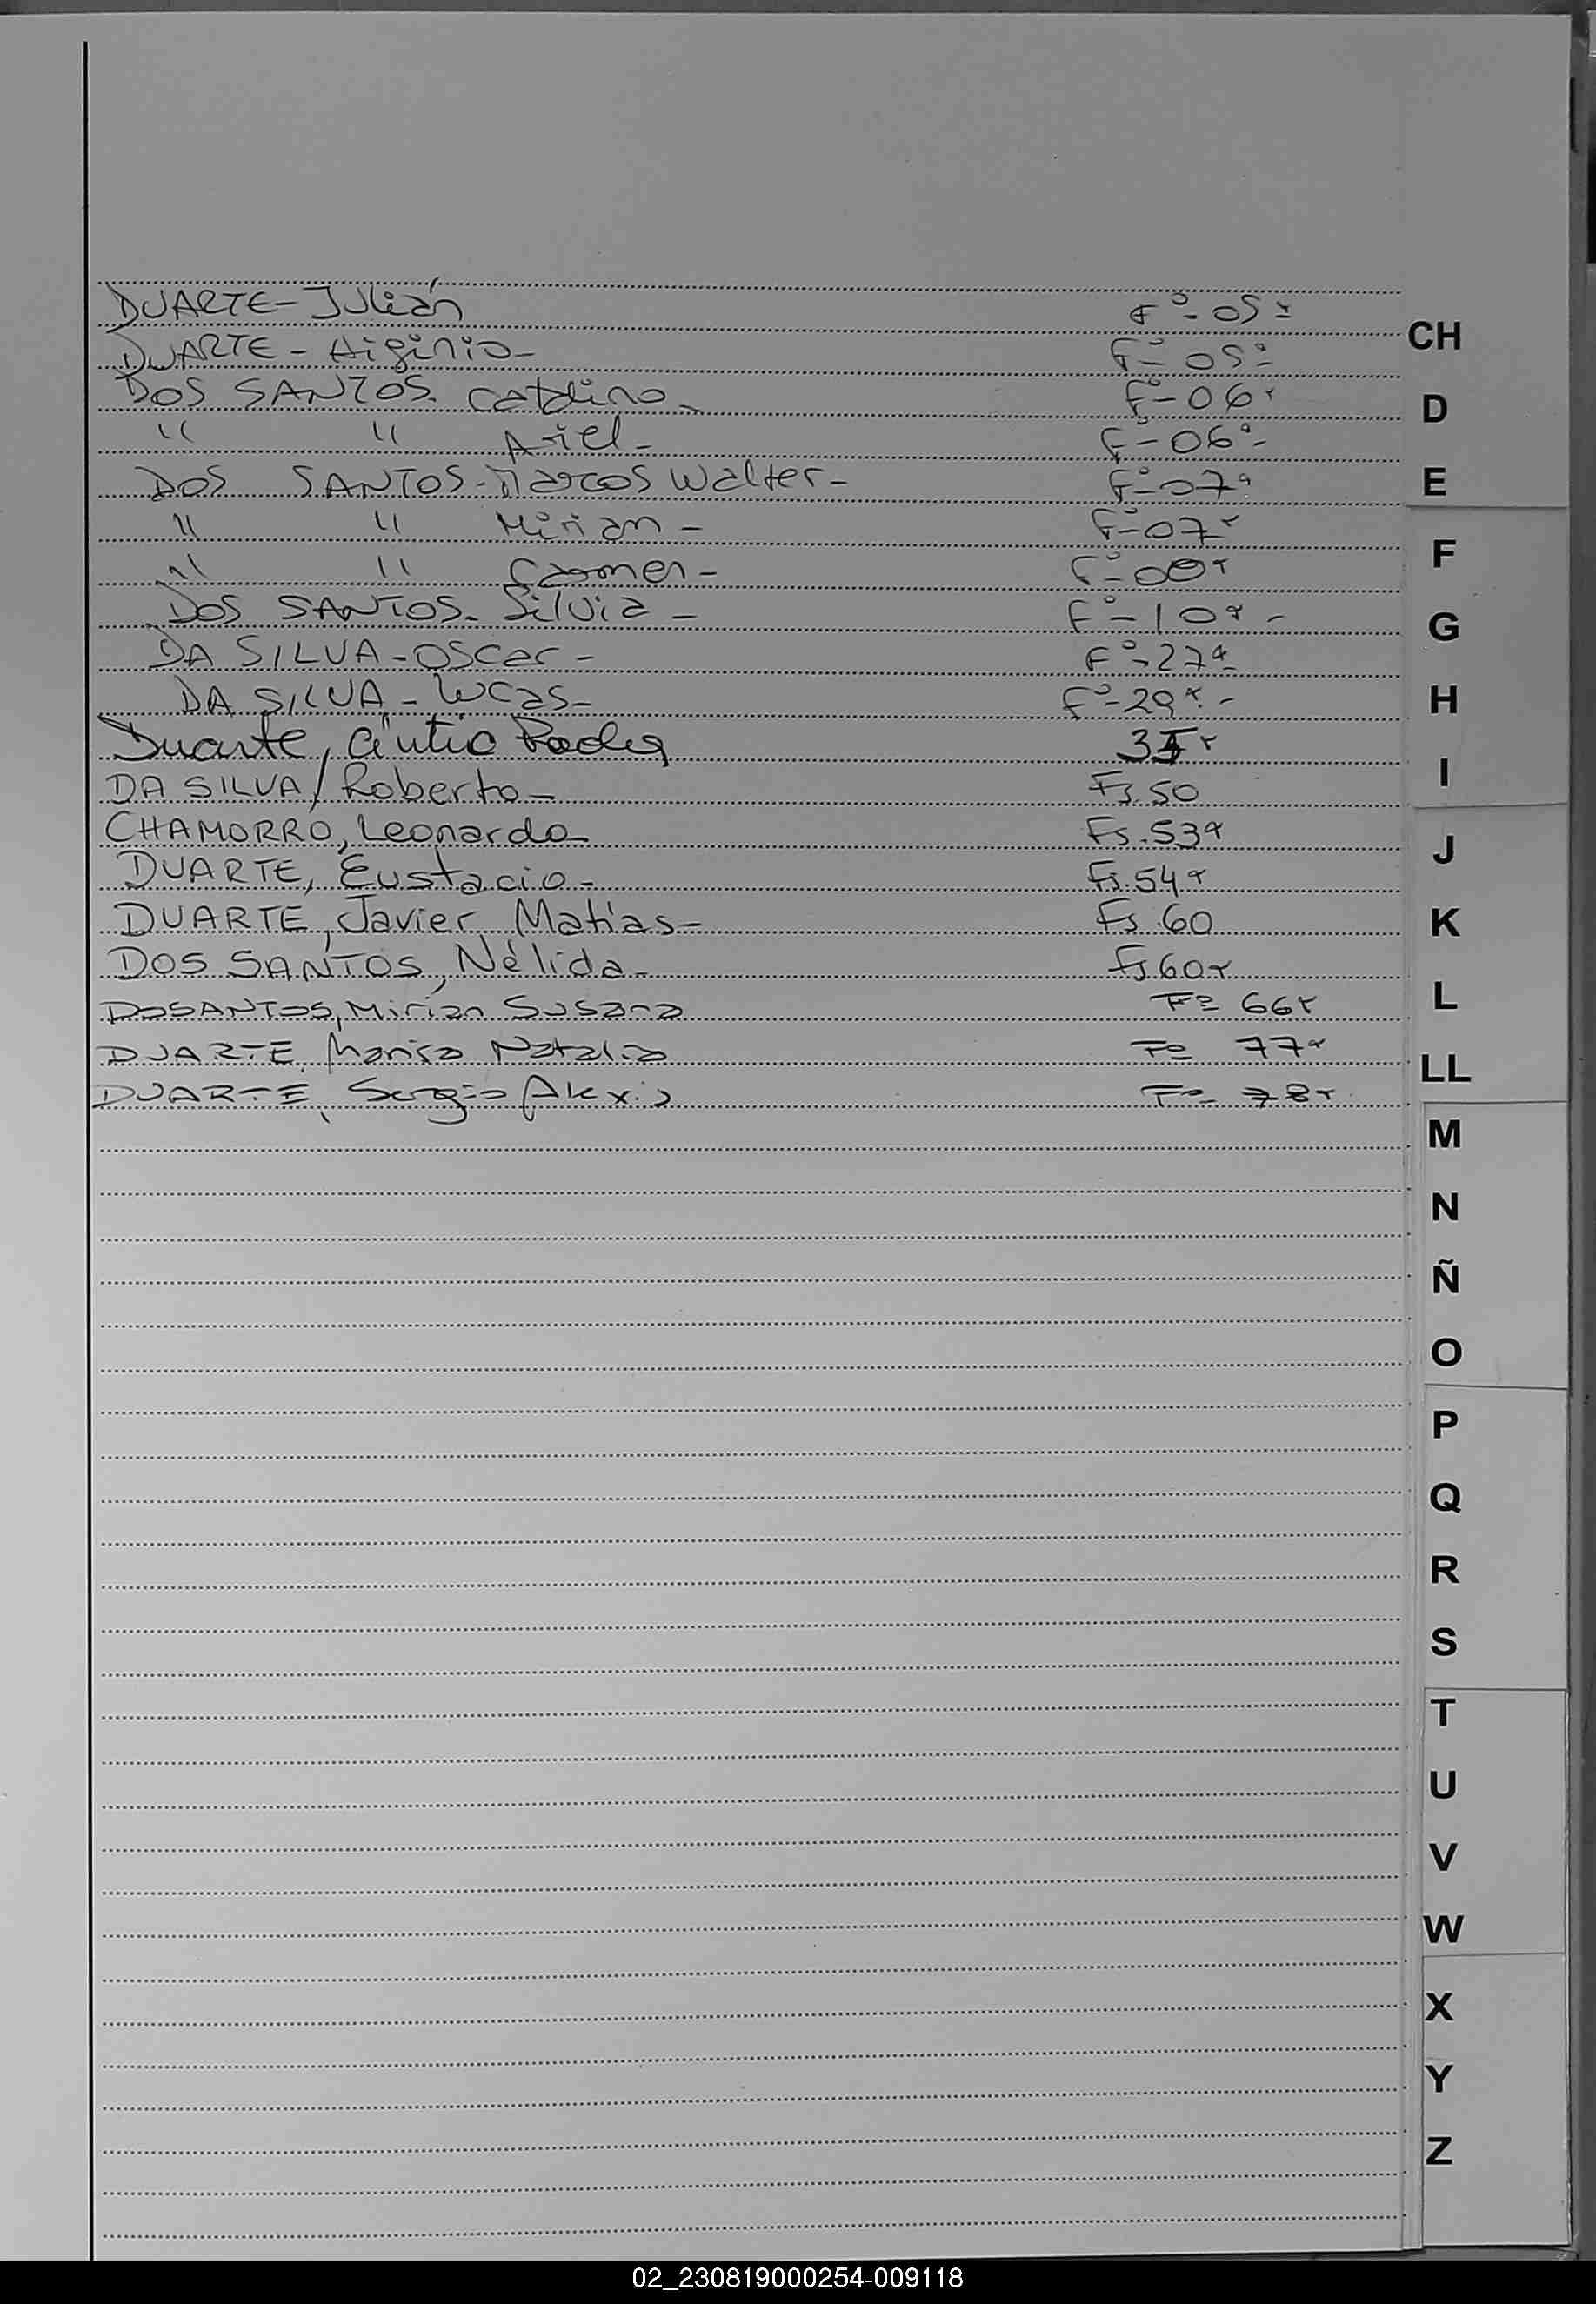 DUARTE - Julián F° - 05
DUARTE - Higinio - F° - 05
DOS SANTOS. Catalino - F° - 06
" " Ariel - F° - 06
DOS SANTOS - Marcos Walter - F° - 07
CH
D
E
" " Mirian - F° - 07
" " Carmen - F° -
DOS SANTOS - Silvia - F° - 10
DA SILVA - Oscar - F° - 27
DA SILVA - Lucas - F° -
F
G
H
Duarte,
DA SILVA, Roberto - Fs. 50
CHAMORRO, Leonardo - Fs. 53
DUARTE, Eustacio - Fs. 54
DUARTE, Javier Matías - Fs. 60
DOS SANTOS, Nélida - Fs 60
DOSANTOS, Mirian Susana Fº 66
DUARTE, Marisa Natalia Fº 77
DUARTE, Sergio Alexis Fº 78
I
J
K
L
LL
M
N
Ñ
O
P
Q
R
S
T
U
V
W
X
Y
Z
02_230819000254-009118